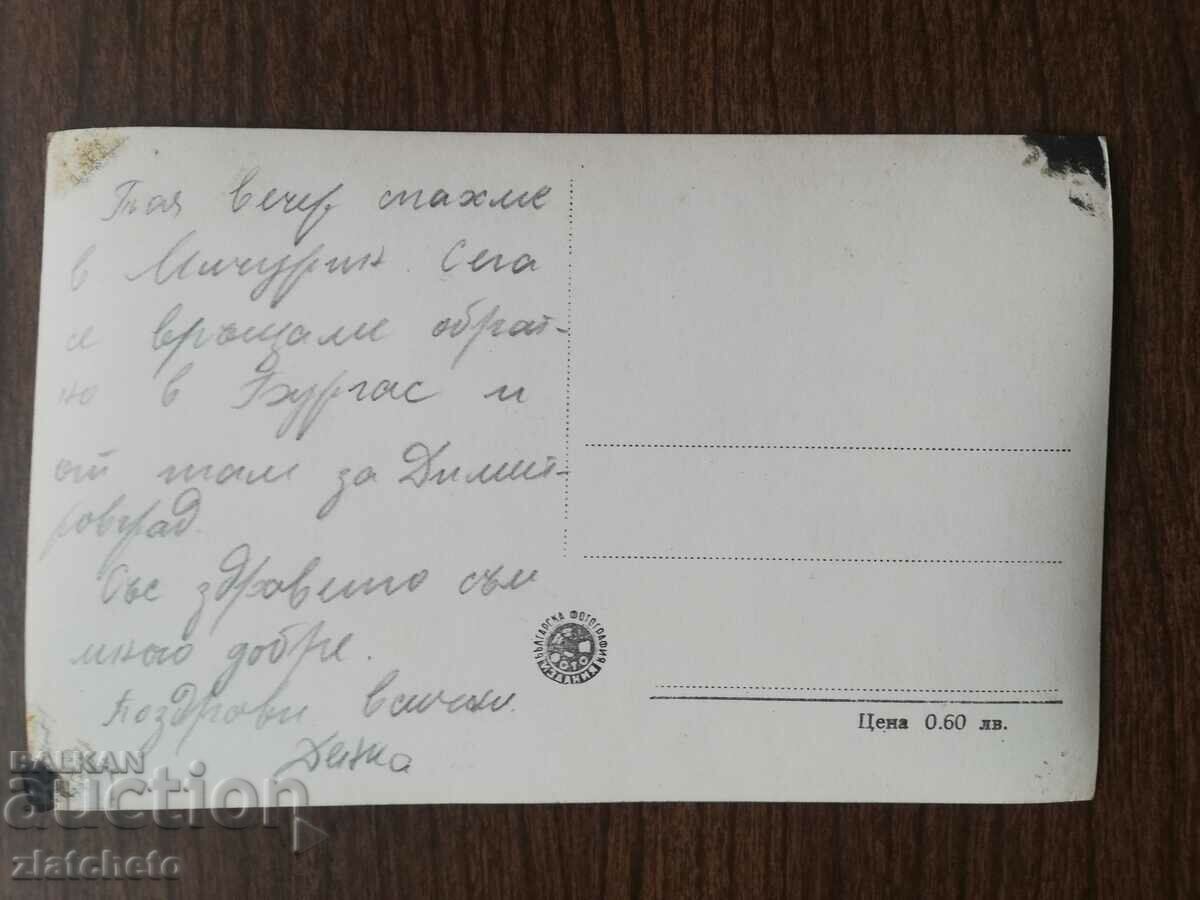 Тая вечер спахме
в Мичурин. Сега
се връщаме обрат-
но в Бургас и
от там за Димит-
ровград.
Със здравето съм
много добре.
Поздрови всички
Денка
БЪЛГАРСКА ФОТОГРАФИЯ
ОТО
Цена 0.60 лв.
BALKAN
auction
zlatcheto